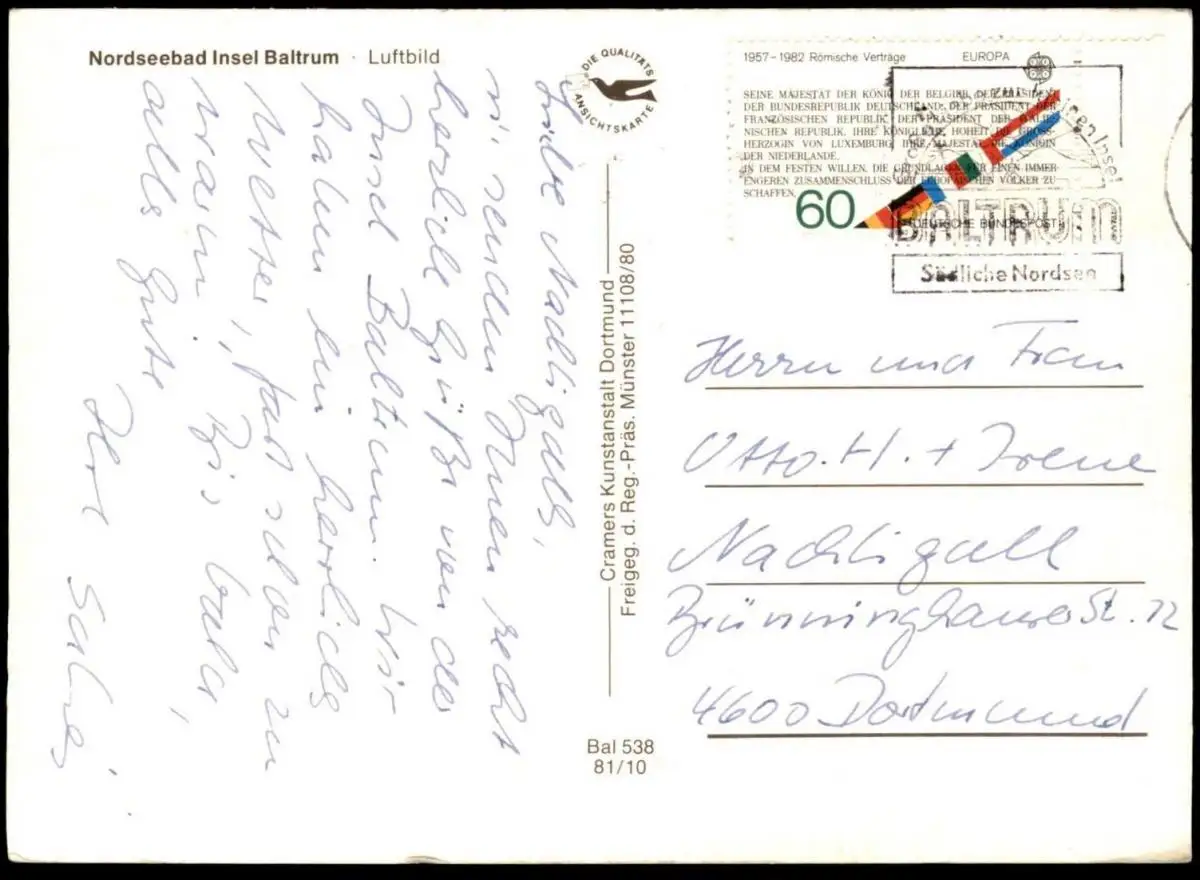 Nordseebad Insel Baltrum · Luftbild
DIE QUALITÄTS
ANSICHTSKARTE
Liebe Nachtigalls,
wir senden Ihnen recht
herzliche Grüße von der
Insel Baltrum. Wir
haben ein herrliches
Wetter, fast schon zu
warm! Bis bald,
alles Gute
Ihre
Cramers Kunstanstalt Dortmund
Freigeg. d. Reg.-Präs. Münster 11108/80
Bal 538
81/10
1957–1982 Römische Verträge EUROPA
SEINE MAJESTÄT DER KÖNIG DER BELGIER, DER PRÄSIDENT
DER BUNDESREPUBLIK DEUTSCHLAND, DER PRÄSIDENT DER
FRANZÖSISCHEN REPUBLIK, DER PRÄSIDENT DER ITALIE-
NISCHEN REPUBLIK, IHRE KÖNIGLICHE HOHEIT DIE GROSS-
HERZOGIN VON LUXEMBURG, IHRE MAJESTÄT DIE KÖNIGIN
DER NIEDERLANDE,
IN DEM FESTEN WILLEN, DIE GRUNDLAGEN FÜR EINEN IMMER
ENGEREN ZUSAMMENSCHLUSS DER EUROPÄISCHEN VÖLKER ZU
SCHAFFEN,
60
DEUTSCHE BUNDESPOST
Insel
BALTRUM
Südliche Nordsee
Herrn und Frau
Otto. H. + Irene
Nachtigall
Brünninghauser St. 12
4600 Dortmund